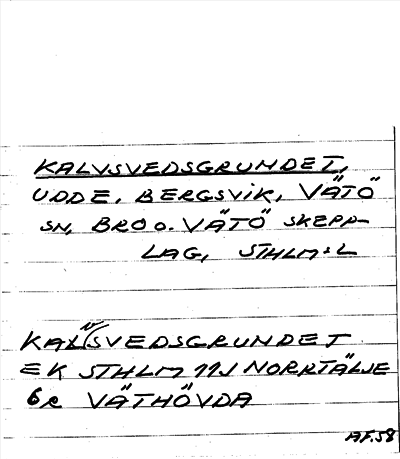 KALVSVEDSGRUNDET,
UDDE, BERGSVIK, VÄTÖ
SN, BRO o. VÄTÖ SKEPP-
LAG, STHLM:L
KALVSVEDSGRUNDET
EK STHLM 11J NORRTÄLJE
6e VÄTHÖVDA
AF.58